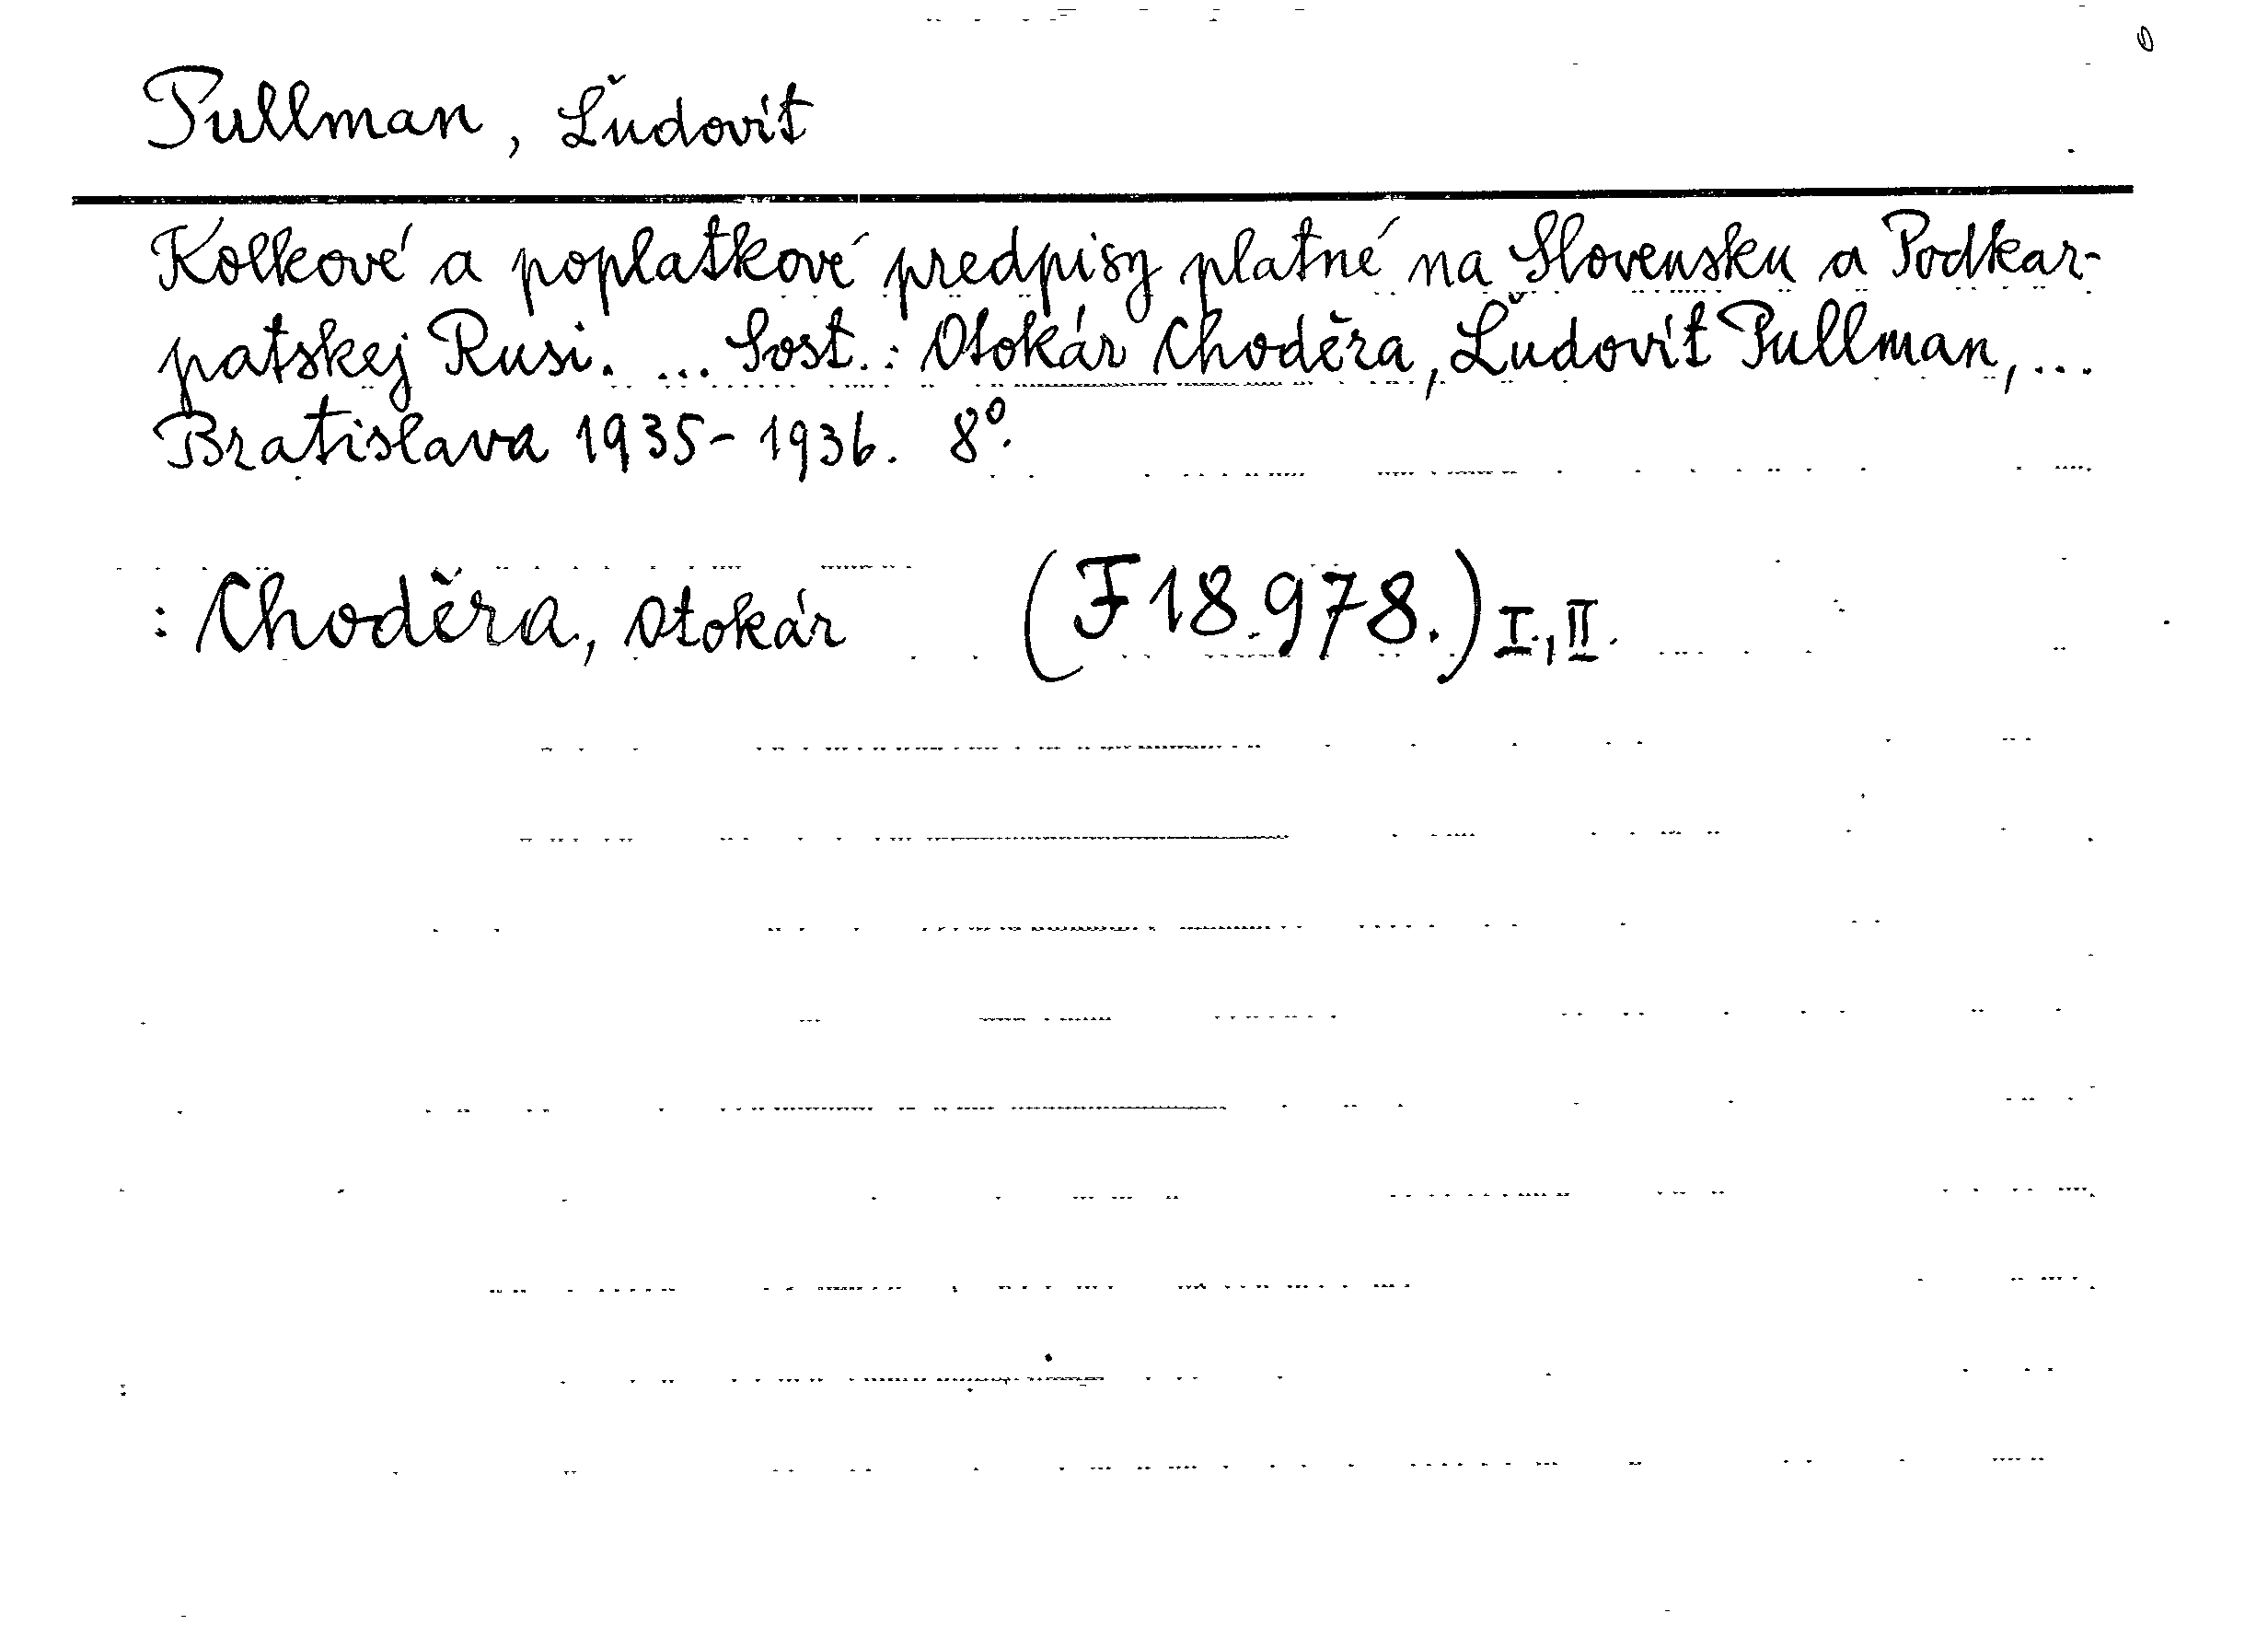 Pullman, Ľudovít
Kolkové a poplatkové predpisy platné na Slovensku a Podkar-
patskej Rusi. ... Sost.: Otokár Choděra, Ľudovít Pullman, ...
Bratislava 1935-1936. 8°.
: Choděra, Otokár (F 18.978.) I., II.